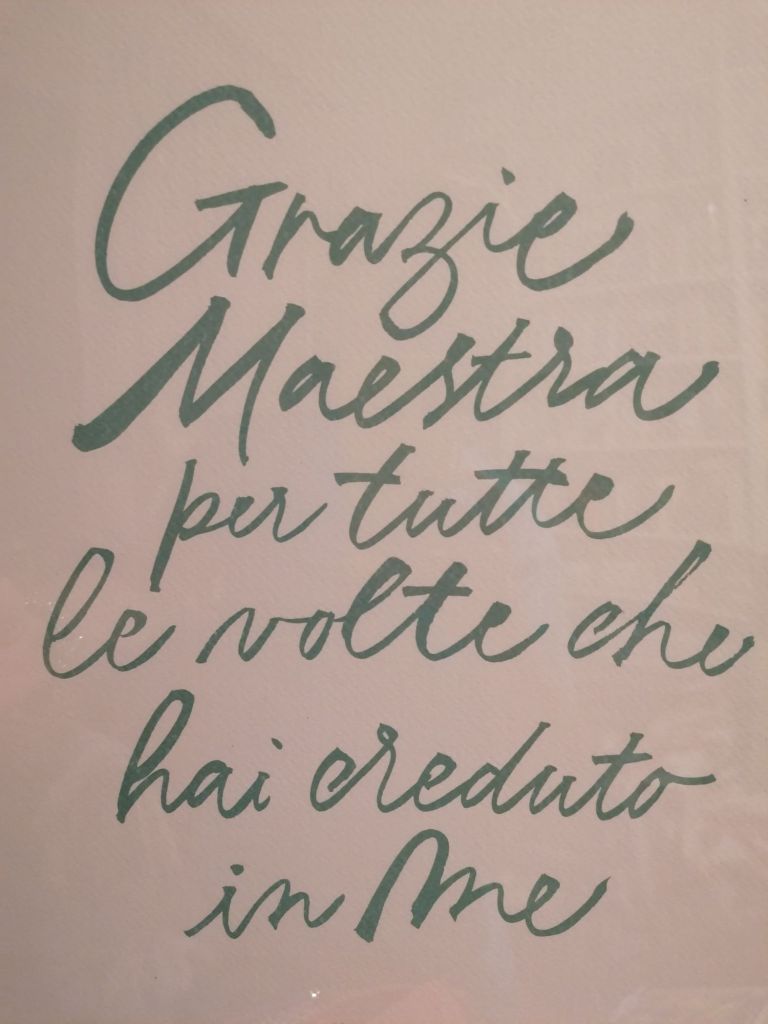 Grazie
Maestra
per tutte
le volte che
hai creduto
in me